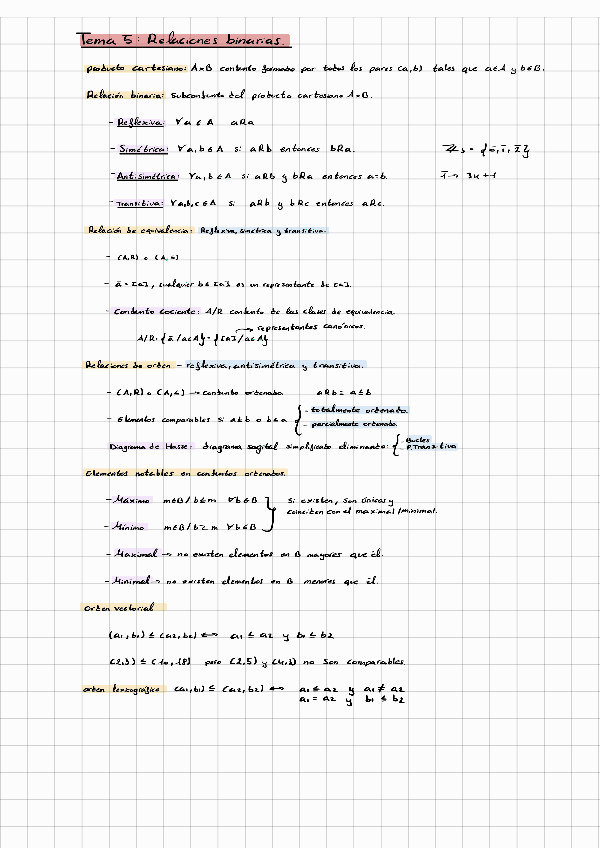 Tema 5: Relaciones binarias.
producto cartesiano: A×B conjunto formado por todos los pares (a,b) tales que a∈A y b∈B.
Relación binaria: subconjunto del producto cartesiano A×B.
- Reflexiva: ∀a∈A aRa
- Simétrica: ∀a,b∈A si aRb entonces bRa.
ℤ₃ = {0̄, 1̄, 2̄}
- Antisimétrica: ∀a,b∈A si aRb y bRa entonces a=b.
1̄ → 3k+1
- Transitiva: ∀a,b,c∈A si aRb y bRc entonces aRc.
Relación de equivalencia: Reflexiva, simétrica y transitiva.
- (A,R) o (A,~)
- ā = [a], cualquier b∈[a] es un representante de [a].
- Conjunto cociente: A/R conjunto de las clases de equivalencia.
→ representantes canónicos.
A/R = {ā /a∈A} = {[a]/a∈A}
Relaciones de orden - reflexiva, antisimétrica y transitiva.
- (A,R) o (A,≤) → conjunto ordenado. aRb = a≤b
- Elementos comparables si a≤b o b≤a { - totalmente ordenado.
- parcialmente ordenado.
Diagrama de Hasse: diagrama sagital simplificado eliminando: { - Bucles
- P. Transitiva
Elementos notables en conjuntos ordenados.
- Máximo m∈B/b≤m ∀b∈B } Si existen, son únicos y
coinciden con el maximal/minimal.
- Mínimo m∈B/b≥m ∀b∈B
- Maximal → no existen elementos en B mayores que él.
- Minimal → no existen elementos en B menores que él.
Orden vectorial
(a1,b1) ≤ (a2,b2) ⟺ a1 ≤ a2 y b1 ≤ b2
(2,3) ≤ (10,18) pero (2,5) y (4,3) no son comparables.
orden lexicográfico (a1,b1) ≤ (a2,b2) ⟺ a1 ≤ a2 y a1 ≠ a2
a1 = a2 y b1 ≤ b2